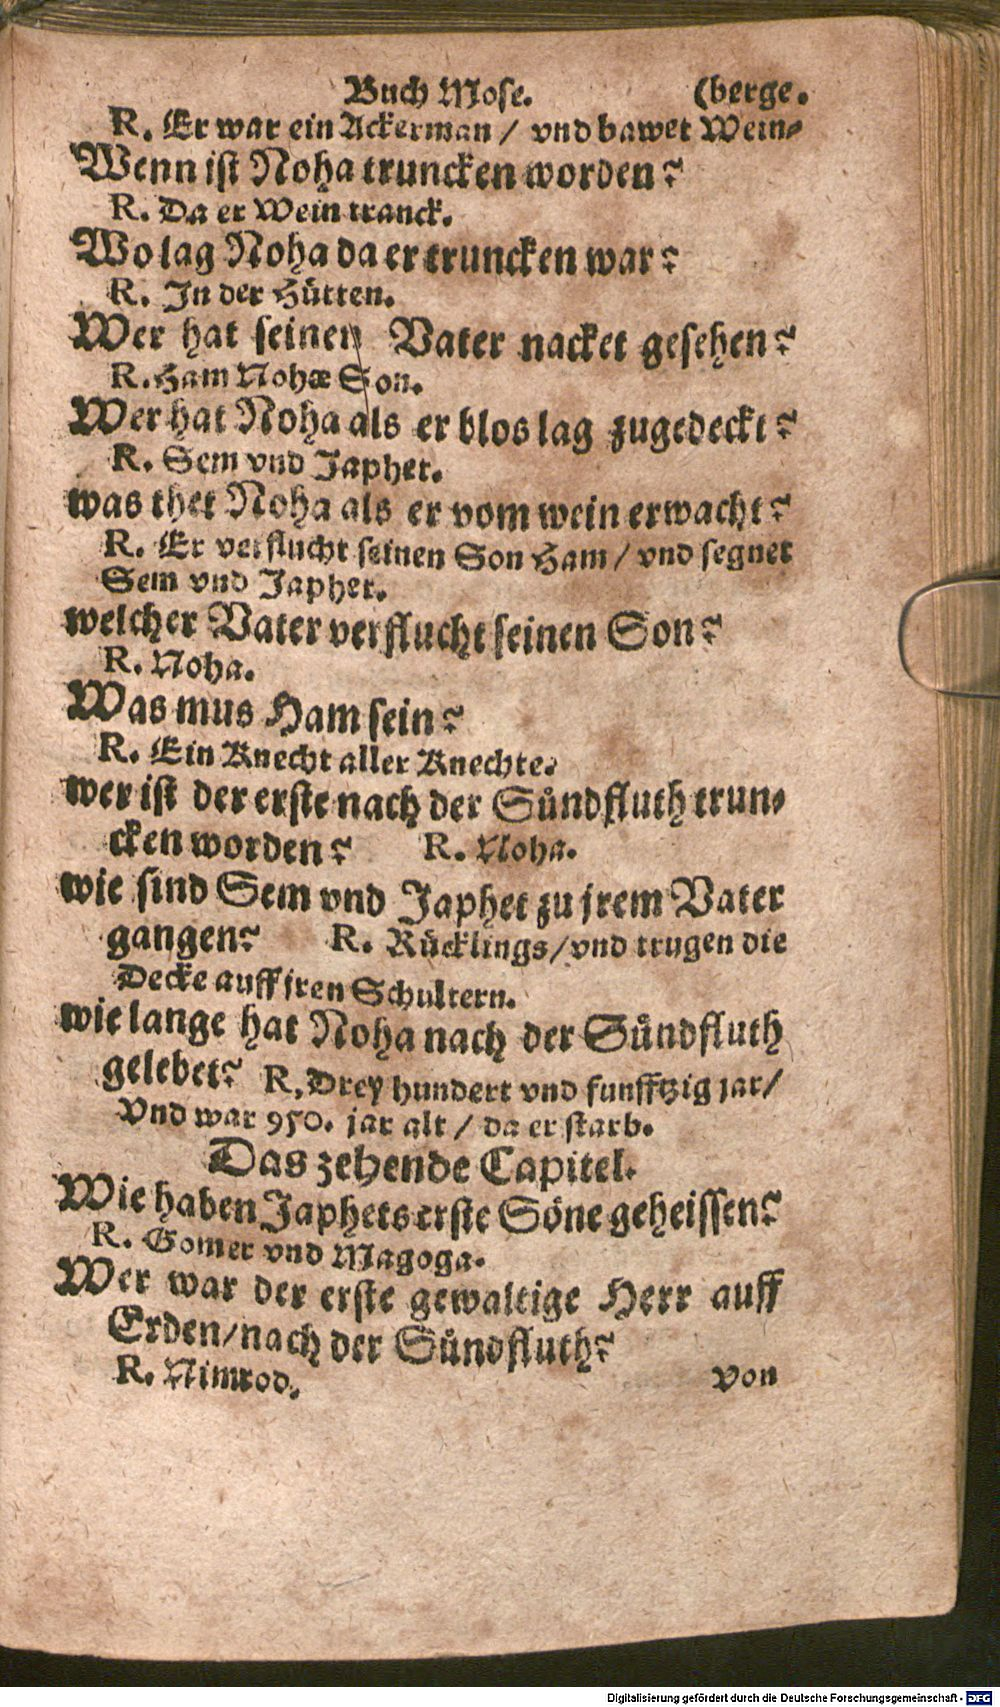 Buch Mose. (berge.
R. Er war ein Ackerman / vnd bawet Wein⸗
Wenn ist Noha truncken worden?
R. Da er Wein tranck.
Wo lag Noha da er truncken war?
R. In der Hütten.
Wer hat seinen Vater nacket gesehen?
R. Ham Nohæ Son.
Wer hat Noha als er blos lag zugedeckt?
R. Sem vnd Japhet.
was thet Noha als er vom wein erwacht?
R. Er verflucht seinen Son Ham / vnd segnet
Sem vnd Japhet.
welcher Vater verflucht seinen Son?
R. Noha.
Was mus Ham sein?
R. Ein Knecht aller Knechte.
wer ist der erste nach der Sündfluth trun⸗
cken worden? R. Noha.
wie sind Sem vnd Japhet zu jrem Vater
gangen? R. Rücklings / vnd trugen die
Decke auff jren Schultern.
wie lange hat Noha nach der Sündfluth
gelebet? R. Drey hundert vnd funfftzig jar /
Vnd war 950. jar alt / da er starb.
Das zehende Capitel.
Wie haben Japhets erste Söne geheissen?
R. Gomer vnd Magoga.
Wer war der erste gewaltige Herr auff
Erden / nach der Sündfluth?
R. Nimrod. von
Digitalisierung gefördert durch die Deutsche Forschungsgemeinschaft - DFG